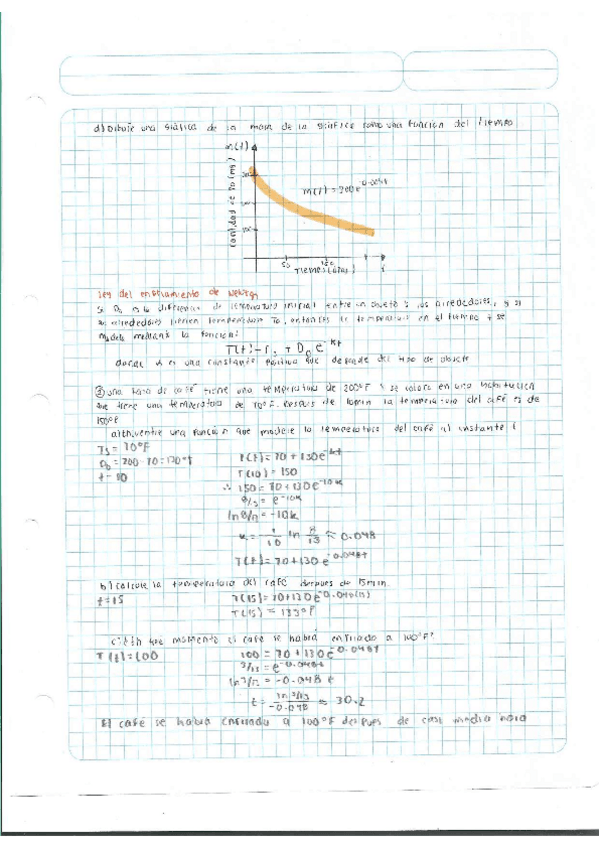 d) Dibuje una gráfica de la masa de la muestra como una función del tiempo
m(t)
m(t) = 300e
Cantidad de (mg)
50 150
Tiempo (días) t
Ley del enfriamiento de Newton
Si D₀ es la diferencia de temperatura inicial entre un objeto y sus alrededores, y si
sus alrededores tienen temperatura Ts, entonces la temperatura en el tiempo t se
modela mediante la función:
T(t) = Ts + D₀ e^-kt
donde k es una constante positiva que depende del tipo de objeto
② una taza de café tiene una temperatura de 200°F y se coloca en una habitación
que tiene una temperatura de 70°F. Después de 10min la temperatura del café es de
150°F
a) Encuentre una función que modele la temperatura del café al instante t
Ts = 70°F T(t) = 70 + 130e^-kt
D₀ = 200 - 70 = 130°F T(10) = 150
t = 10 ∴ 150 = 70 + 130e^-10k
8/13 = e^-10k
ln 8/13 = -10k
k = - 1/10 ln 8/13 ≈ 0.048
T(t) = 70 + 130e^-0.048t
b) calcule la temperatura del café después de 15min.
t = 15 T(15) = 70 + 130e^-0.048(15)
T(15) = 133°F
c) ¿En que momento el café se habrá enfriado a 100°F?
T(t) = 100 100 = 70 + 130e^-0.048t
3/13 = e^-0.048t
ln 3/13 = -0.048 t
t = ln 3/13 / -0.048 ≈ 30.2
El café se habrá enfriado a 100°F después de casi media hora